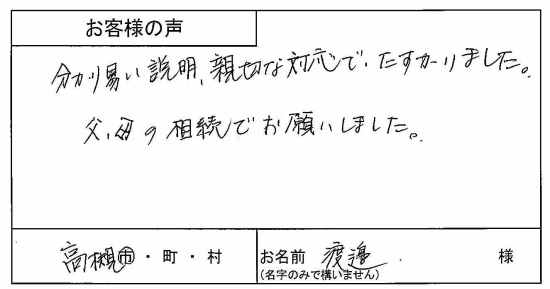 お客様の声
分かり易い説明、親切な対応で、たすかりました。
父、母の相続でお願いしました。
高槻市・町・村
お名前 渡邉 様
(名字のみで構いません)